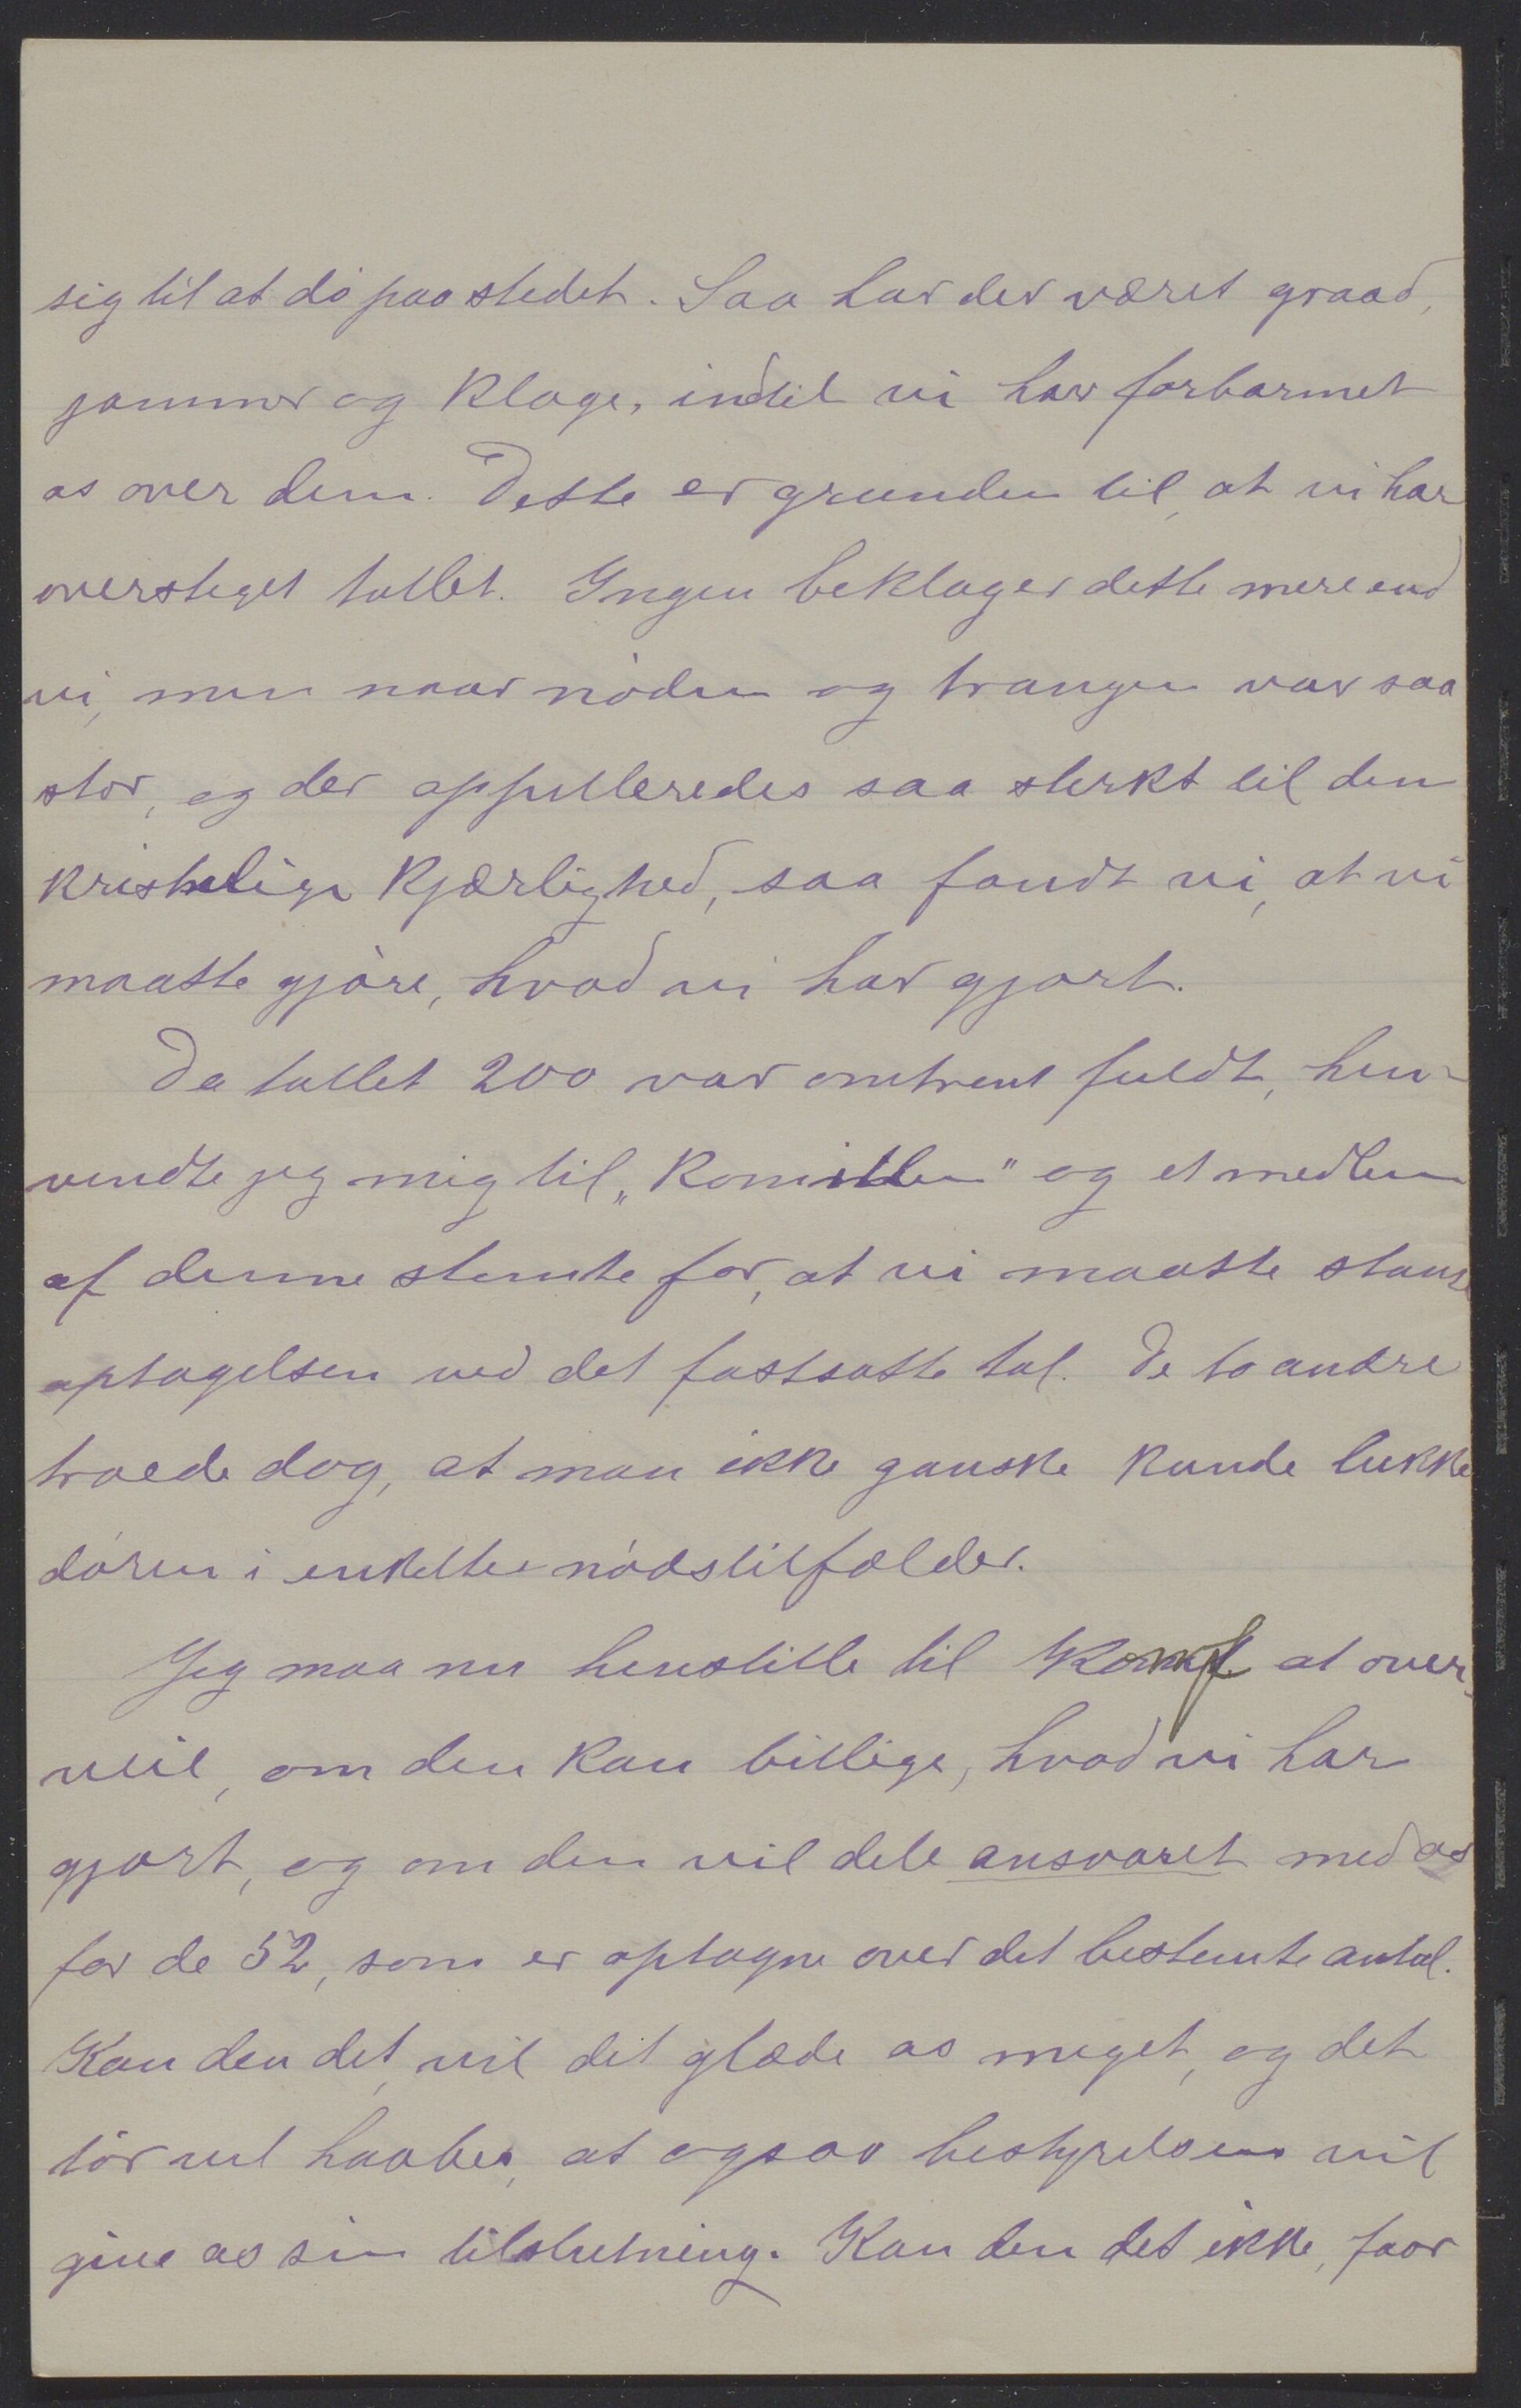 sig til at dø paa stedet. Saa har der været graad,
jammer og klage, indtil vi har forbarmet
os over dem. Dette er grunden til, at vi har
oversteget tallet. Ingen beklager dette mere end
vi, men naar nøden og trangen var saa
stor, og der appelleredes saa sterkt til den
kristelige kjærlighed, saa fandt vi, at vi
maatte gjøre, hvad vi har gjort.
Da tallet 200 var omtrent fuldt, hen-
vendte jeg mig til „Komitteen" og et medlem
af denne stemte for, at vi maatte stanse
optagelsen ved det fastsatte tal. De to andre
troede dog, at man ikke ganske kunde lukke
døren i enkelte nødstilfælder.
Jeg maa nu henstille til Konf. at over-
veie, om den kan billige, hvad vi har
gjort, og om den vil dele ansvaret med os
for de 52, som er optagne over det bestemte antal.
Kan den det, vil det glæde os meget, og det
tør vel haabes, at ogsaa bestyrelsen vil
give os sin tilslutning. Kan den det ikke, faar